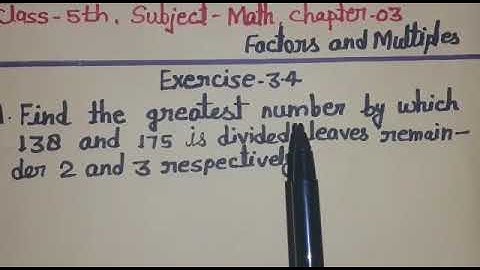 Class-5th, Subject-Math, Chapter-03
Factors and Multiples
Exercise-3.4
1. Find the greatest number by which
138 and 175 is divided leaves remain-
der 2 and 3 respectively